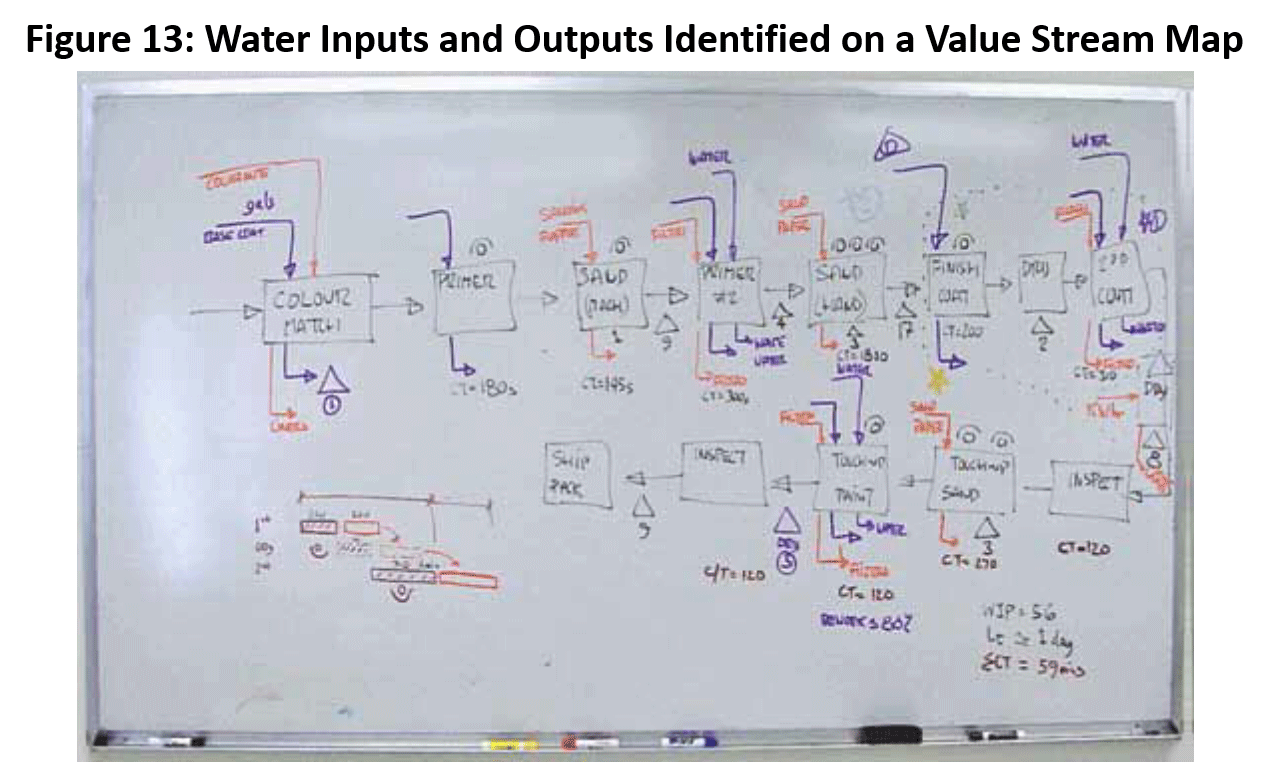 Figure 13: Water Inputs and Outputs Identified on a Value Stream Map
WATER
WATER
COLOURANTS
gels
BASE COAT
SAND
PAPER
FILTERS
COLOUR
MATCH
PRIMER
SAND
(MACH)
PRIMER
#2
SAND
(HAND)
FINISH
COAT
DRY
2ND
COAT
1
9
4
3
17
2
WASTE
WATER
CT=180s
CT=145s
CT=300s
CT=1800
CT=200
1
WATER
DRY
FILTER
SAND
PAPER
8
SHIP
PACK
INSPECT
TOUCHUP
PAINT
TOUCHUP
SAND
INSPECT
9
DRY
5
WATER
3
FILTERS
C/T=120
CT=120
CT=270
CT=120
REWORK ≤ 80%
1st
2nd
WIP=56
LT ≃ 1 day
ΣCT = 59 min